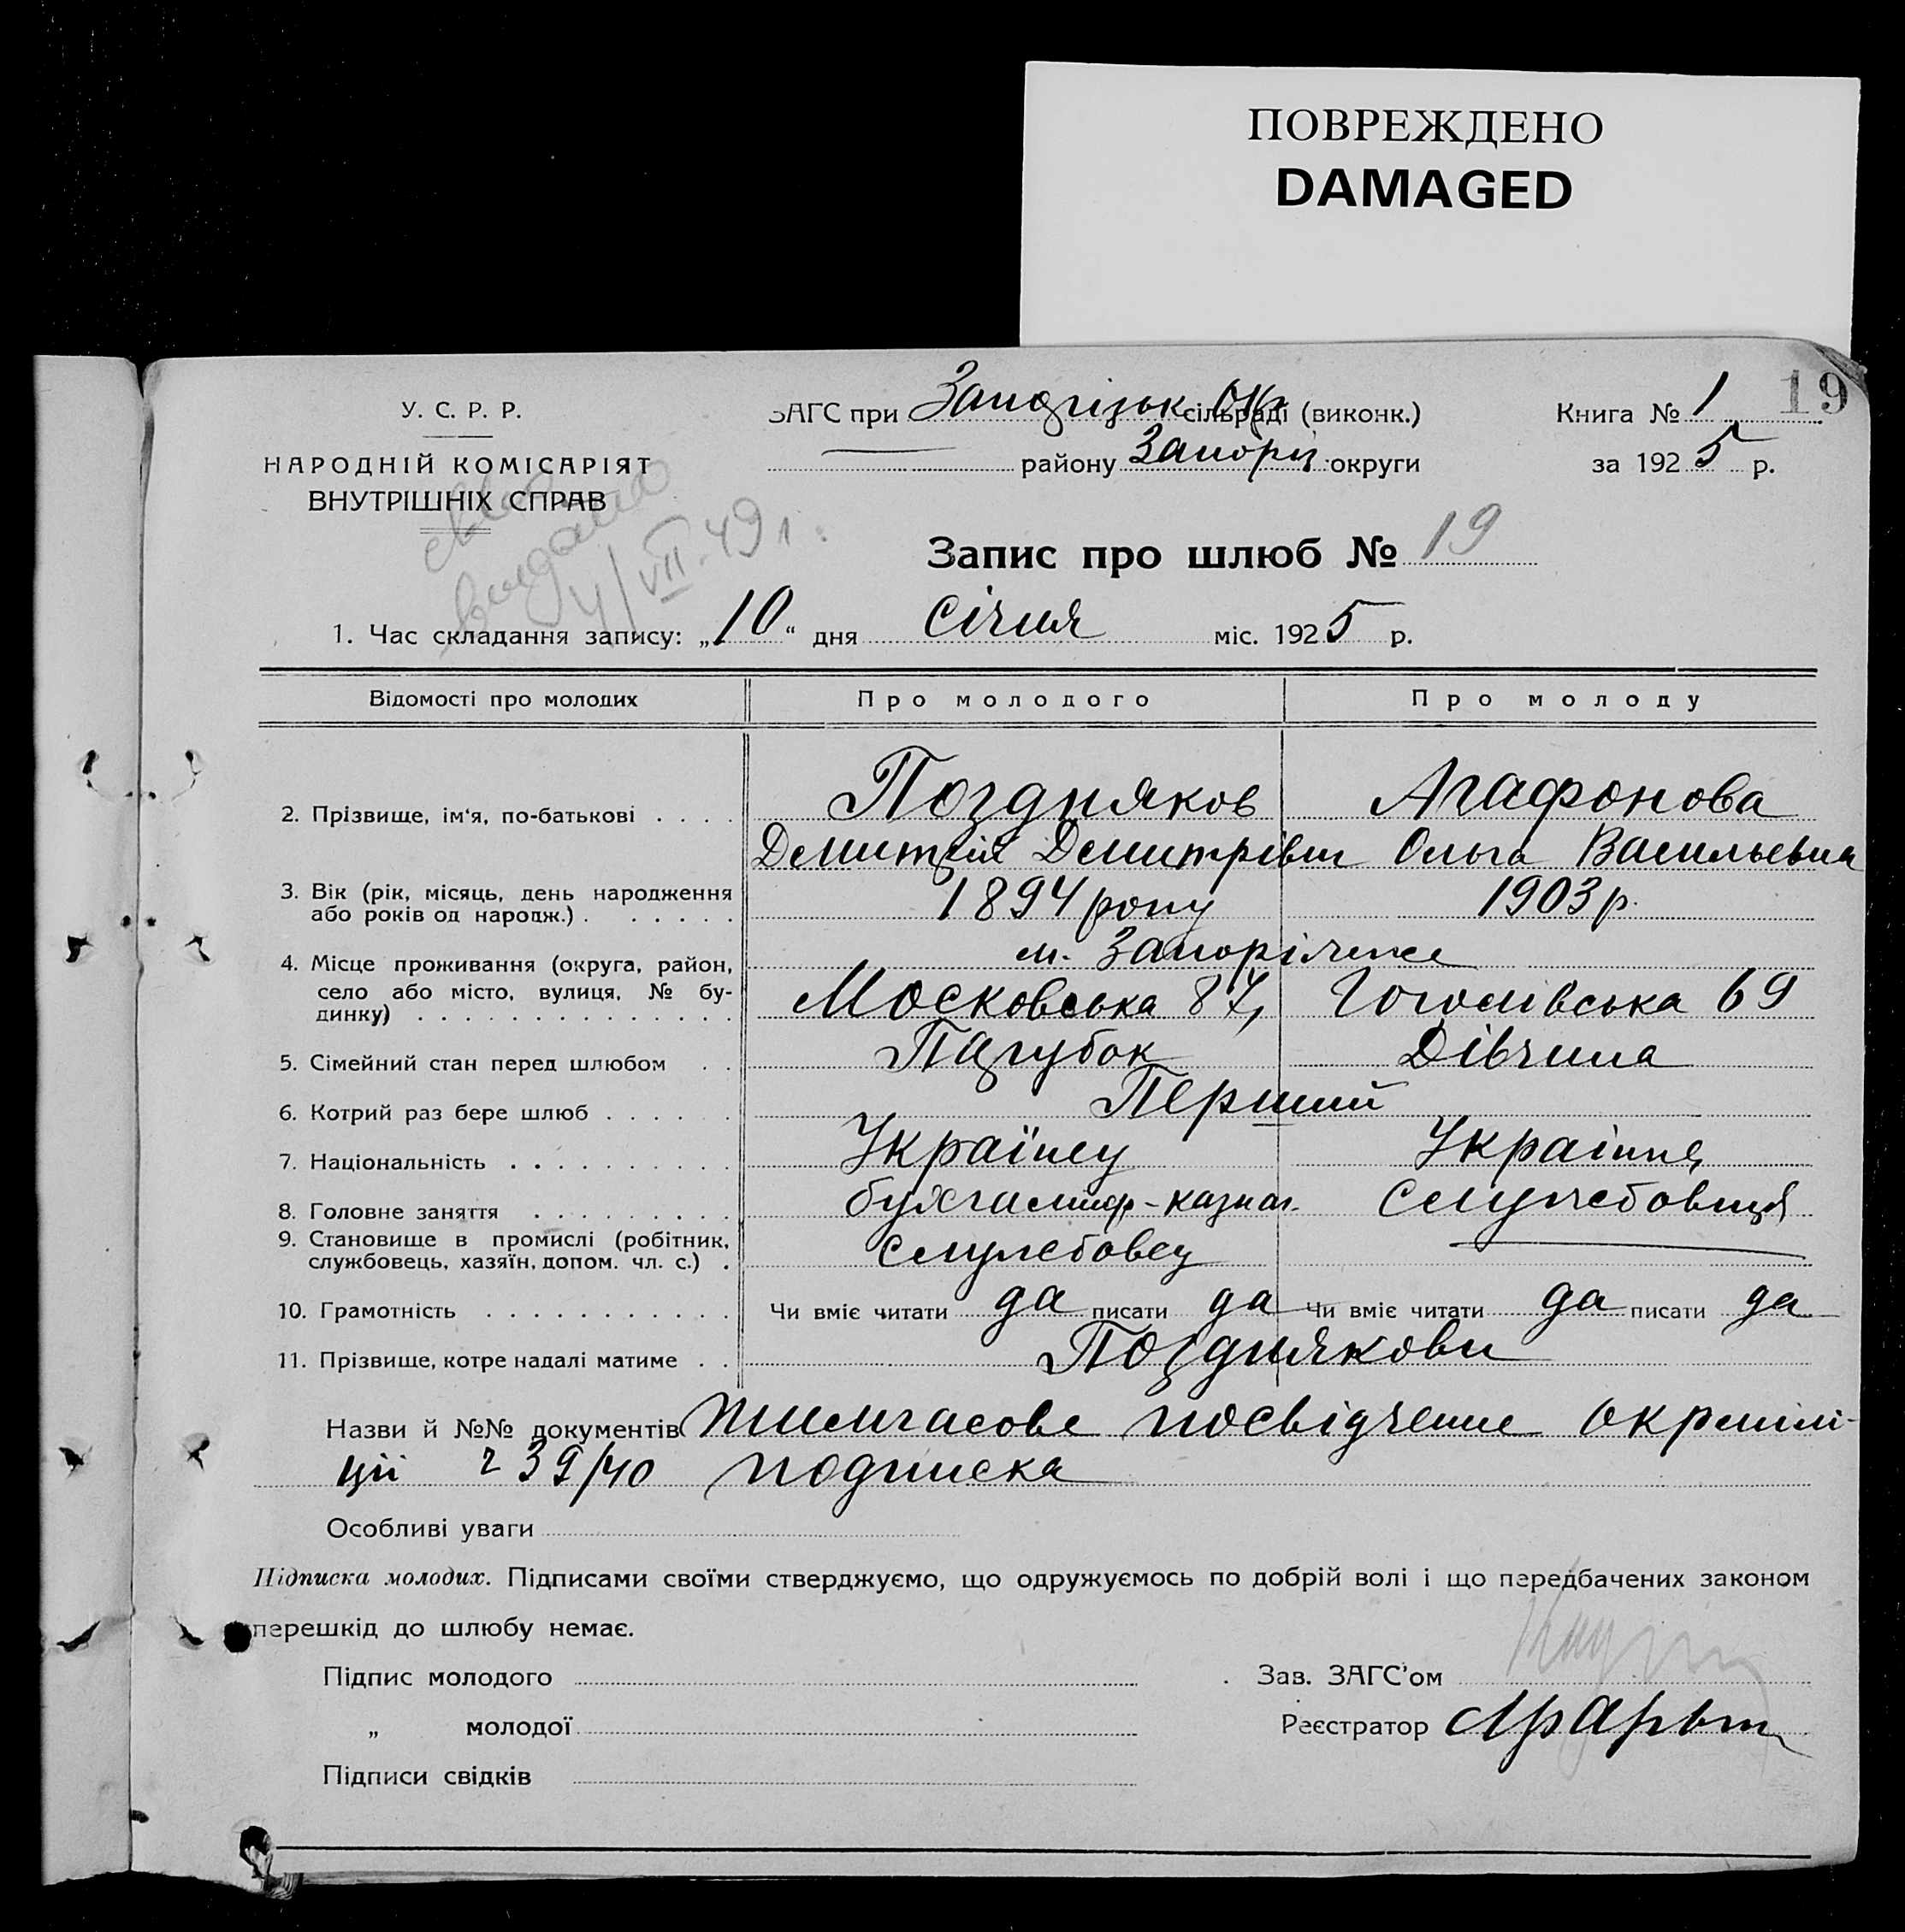 ПОВРЕЖДЕНО
DAMAGED
19
У. С. Р. Р.
НАРОДНІЙ КОМІСАРІЯТ
ВНУТРІШНІХ СПРАВ
видано
4/VII.49 г.
ЗАГС при Запорізьк Окр сільраді (виконк.)
району Запоріз округи
Книга № 1
за 1925 р.
Запис про шлюб № 19
1. Час складання запису: „10“ дня січня міс. 1925 р.
Відомості про молодих Про молодого Про молоду
2. Прізвище, ім‘я, по-батькові . . . . Поздняков Агафонова
Демитрій Демитрівич Ольга Васильевна
3. Вік (рік, місяць, день народження 1894 року 1903 р.
або років од народж.) . . . . . .
4. Місце проживання (округа, район, м. Запоріжже
село або місто, вулиця, № бу- Московська 87, Гоголівська 69
динку) . . . . . . . . . . . . . .
5. Сімейний стан перед шлюбом . . Парубок Дівчина
6. Котрий раз бере шлюб . . . . . . Перший
7. Національність . . . . . . . . . . Українец Украінка
8. Головне заняття . . . . . . . . . бухгалтер-казнач. Служебовиця
9. Становище в промислі (робітник, служебовец
службовець, хазяїн, допом. чл. с.) .
10. Грамотність . . . . . . . . . . . Чи вміє читати да писати да Чи вміє читати да писати да
11. Прізвище, котре надалі матиме . . Позднякови
Назви й №№ документів тимчасове посвідченне окрмілі-
ції ч 39/40 подписка
Особливі уваги
Підписка молодих. Підписами своїми стверджуємо, що одружуємось по добрій волі і що передбачених законом
перешкід до шлюбу немає.
Підпис молодого
„ молодої
Підписи свідків
Зав. ЗАГС’ом
Реєстратор